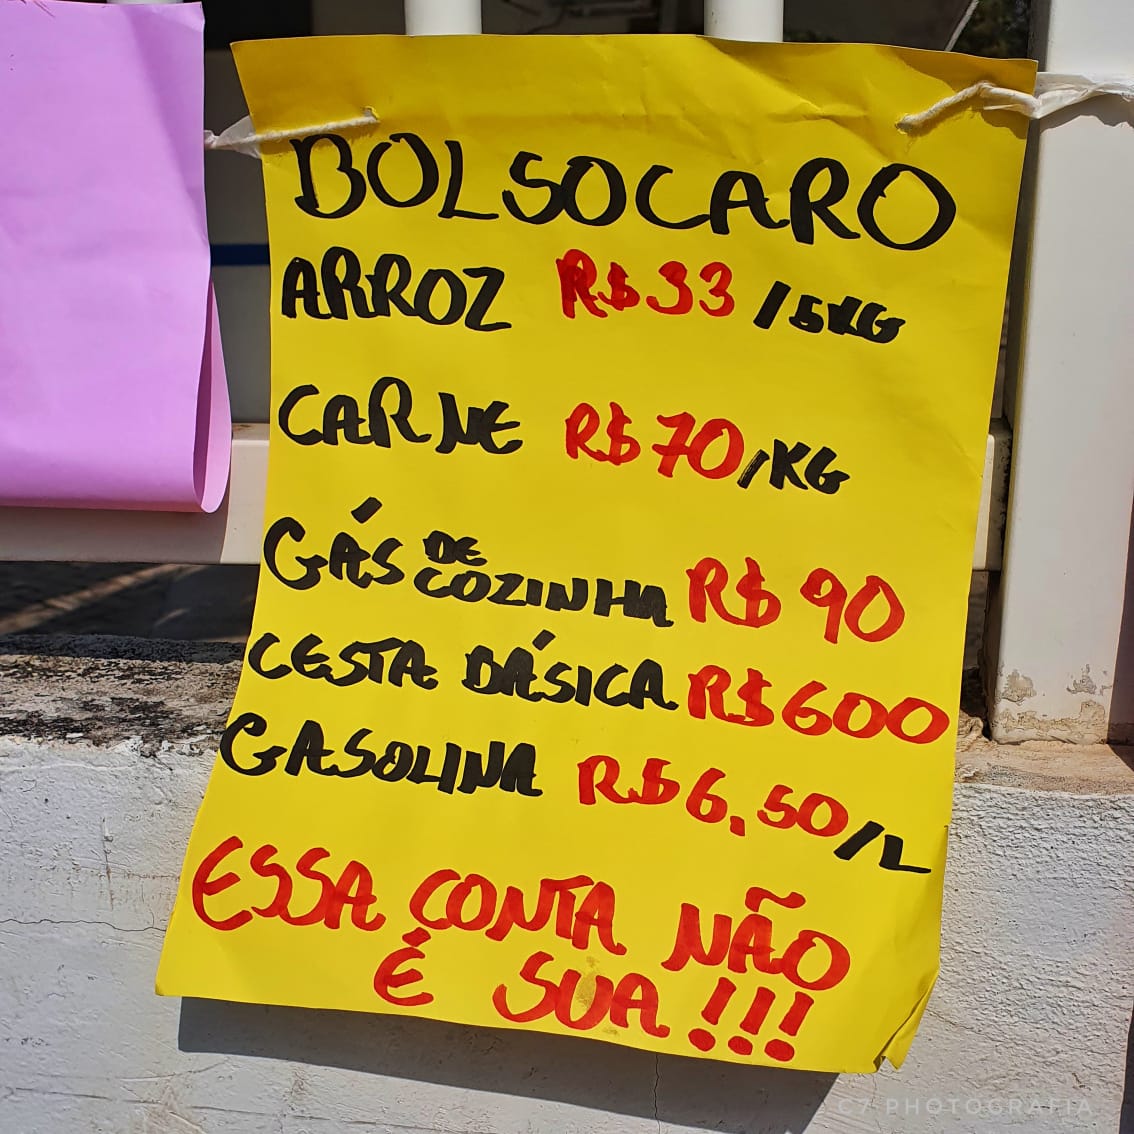 BOLSOCARO
ARROZ R$33 /5KG
CARNE R$70/KG
GÁS DE COZINHA R$ 90
CESTA BÁSICA R$600
GASOLINA R$6,50/L
ESSA CONTA NÃO
É SUA!!!
C7 PHOTOGRAFIA